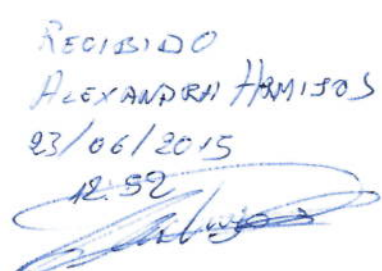 RECIBIDO
ALEXANDRA ARMIJOS
23/06/2015
12:52